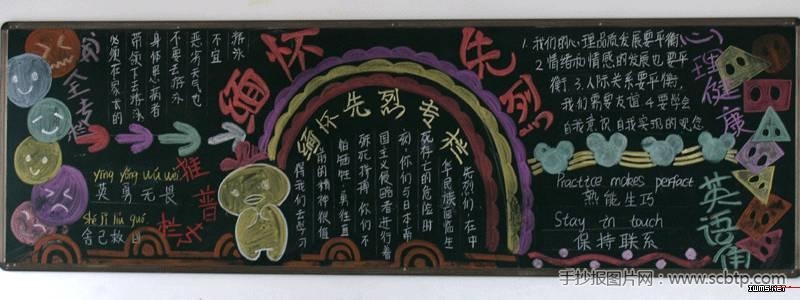 缅怀先烈
安全专栏
游泳
不宜
恶劣天气也
不要去游泳
身体患病者
带领下去游泳
必须在家长的
推普栏
yīng yǒng wú wèi
英勇无畏
shě jǐ jiù guó
舍己救国
缅怀先烈专栏
先烈们在中
华民族面临生
死存亡的危险时
刻，你们与日本帝
国主义侵略者进行着
殊死拼搏，你们不
怕牺牲，勇往直
前的精神很值
得我们去学习
心理健康
1.我们的心理品质发展要平衡
2.情绪和情感的发展也要平
衡.3.人际关系要平衡,
我们需要友谊4.要学会
自我意识自我实现的观念
英语角
Practice makes perfect
熟能生巧
Stay in touch
保持联系
手抄报图片网·www.scbtp.com